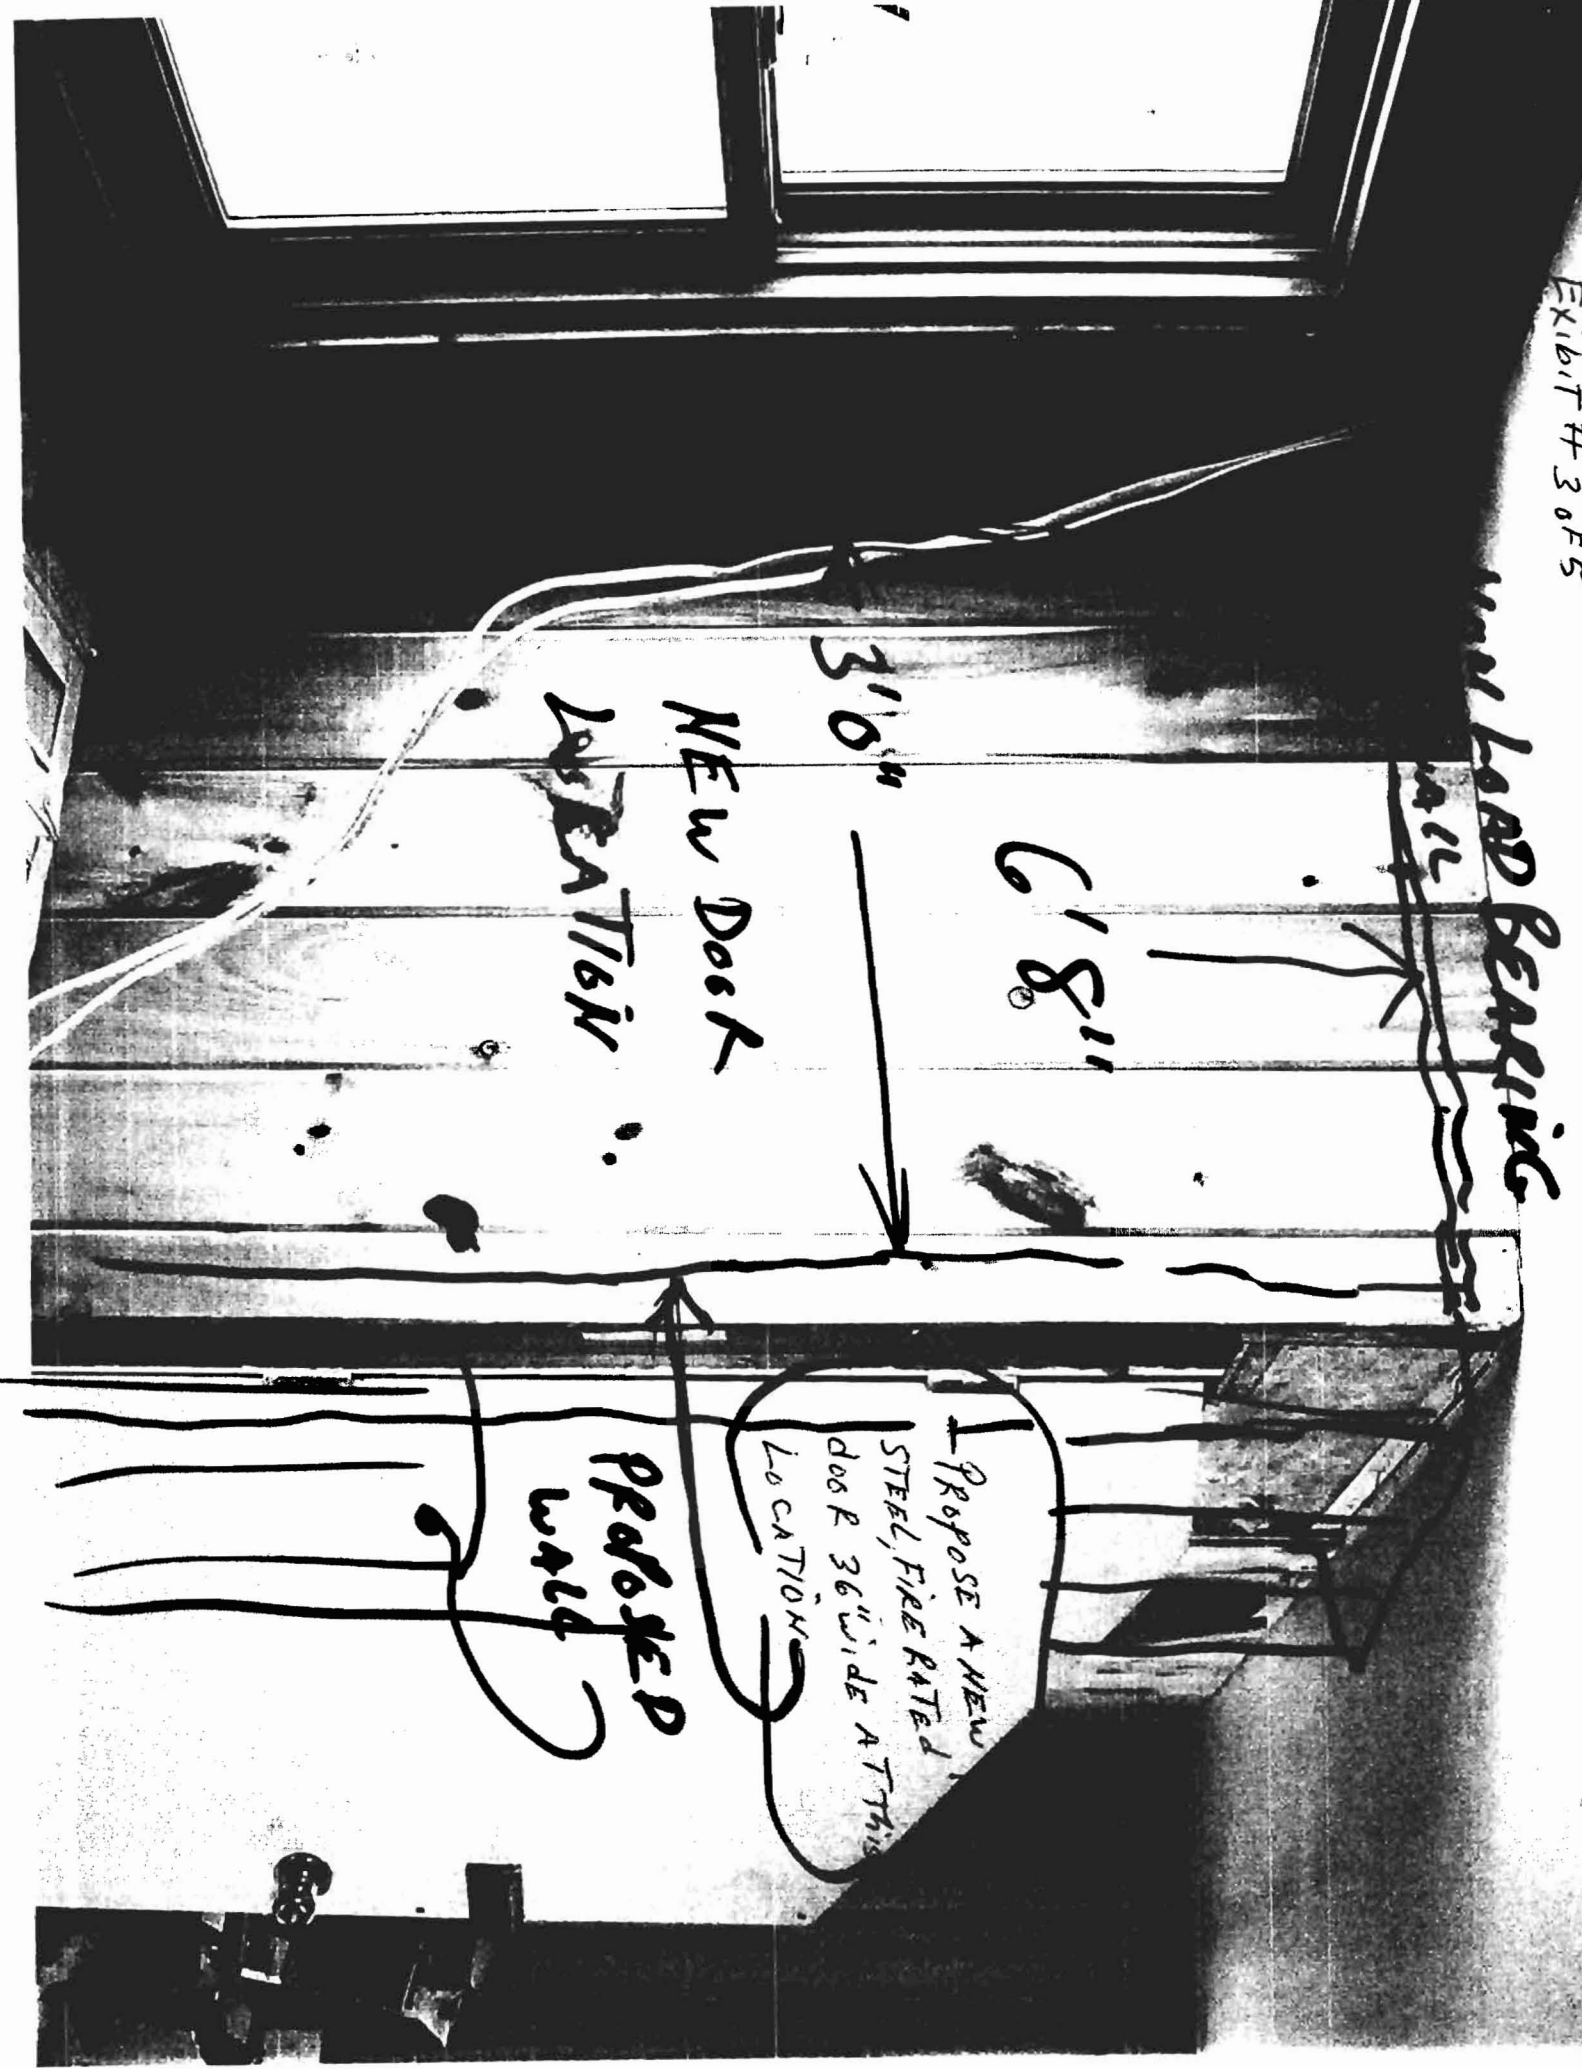 Exibit # 3 of 5
NON LOAD BEARING
WALL
6'8"
3'0"
NEW DOOR
LOCEATION
I PROPOSE A NEW
STEEL, FIRE RATED
dOOR 36" WIDE AT This
LOCATION
PROPOSED
WALL